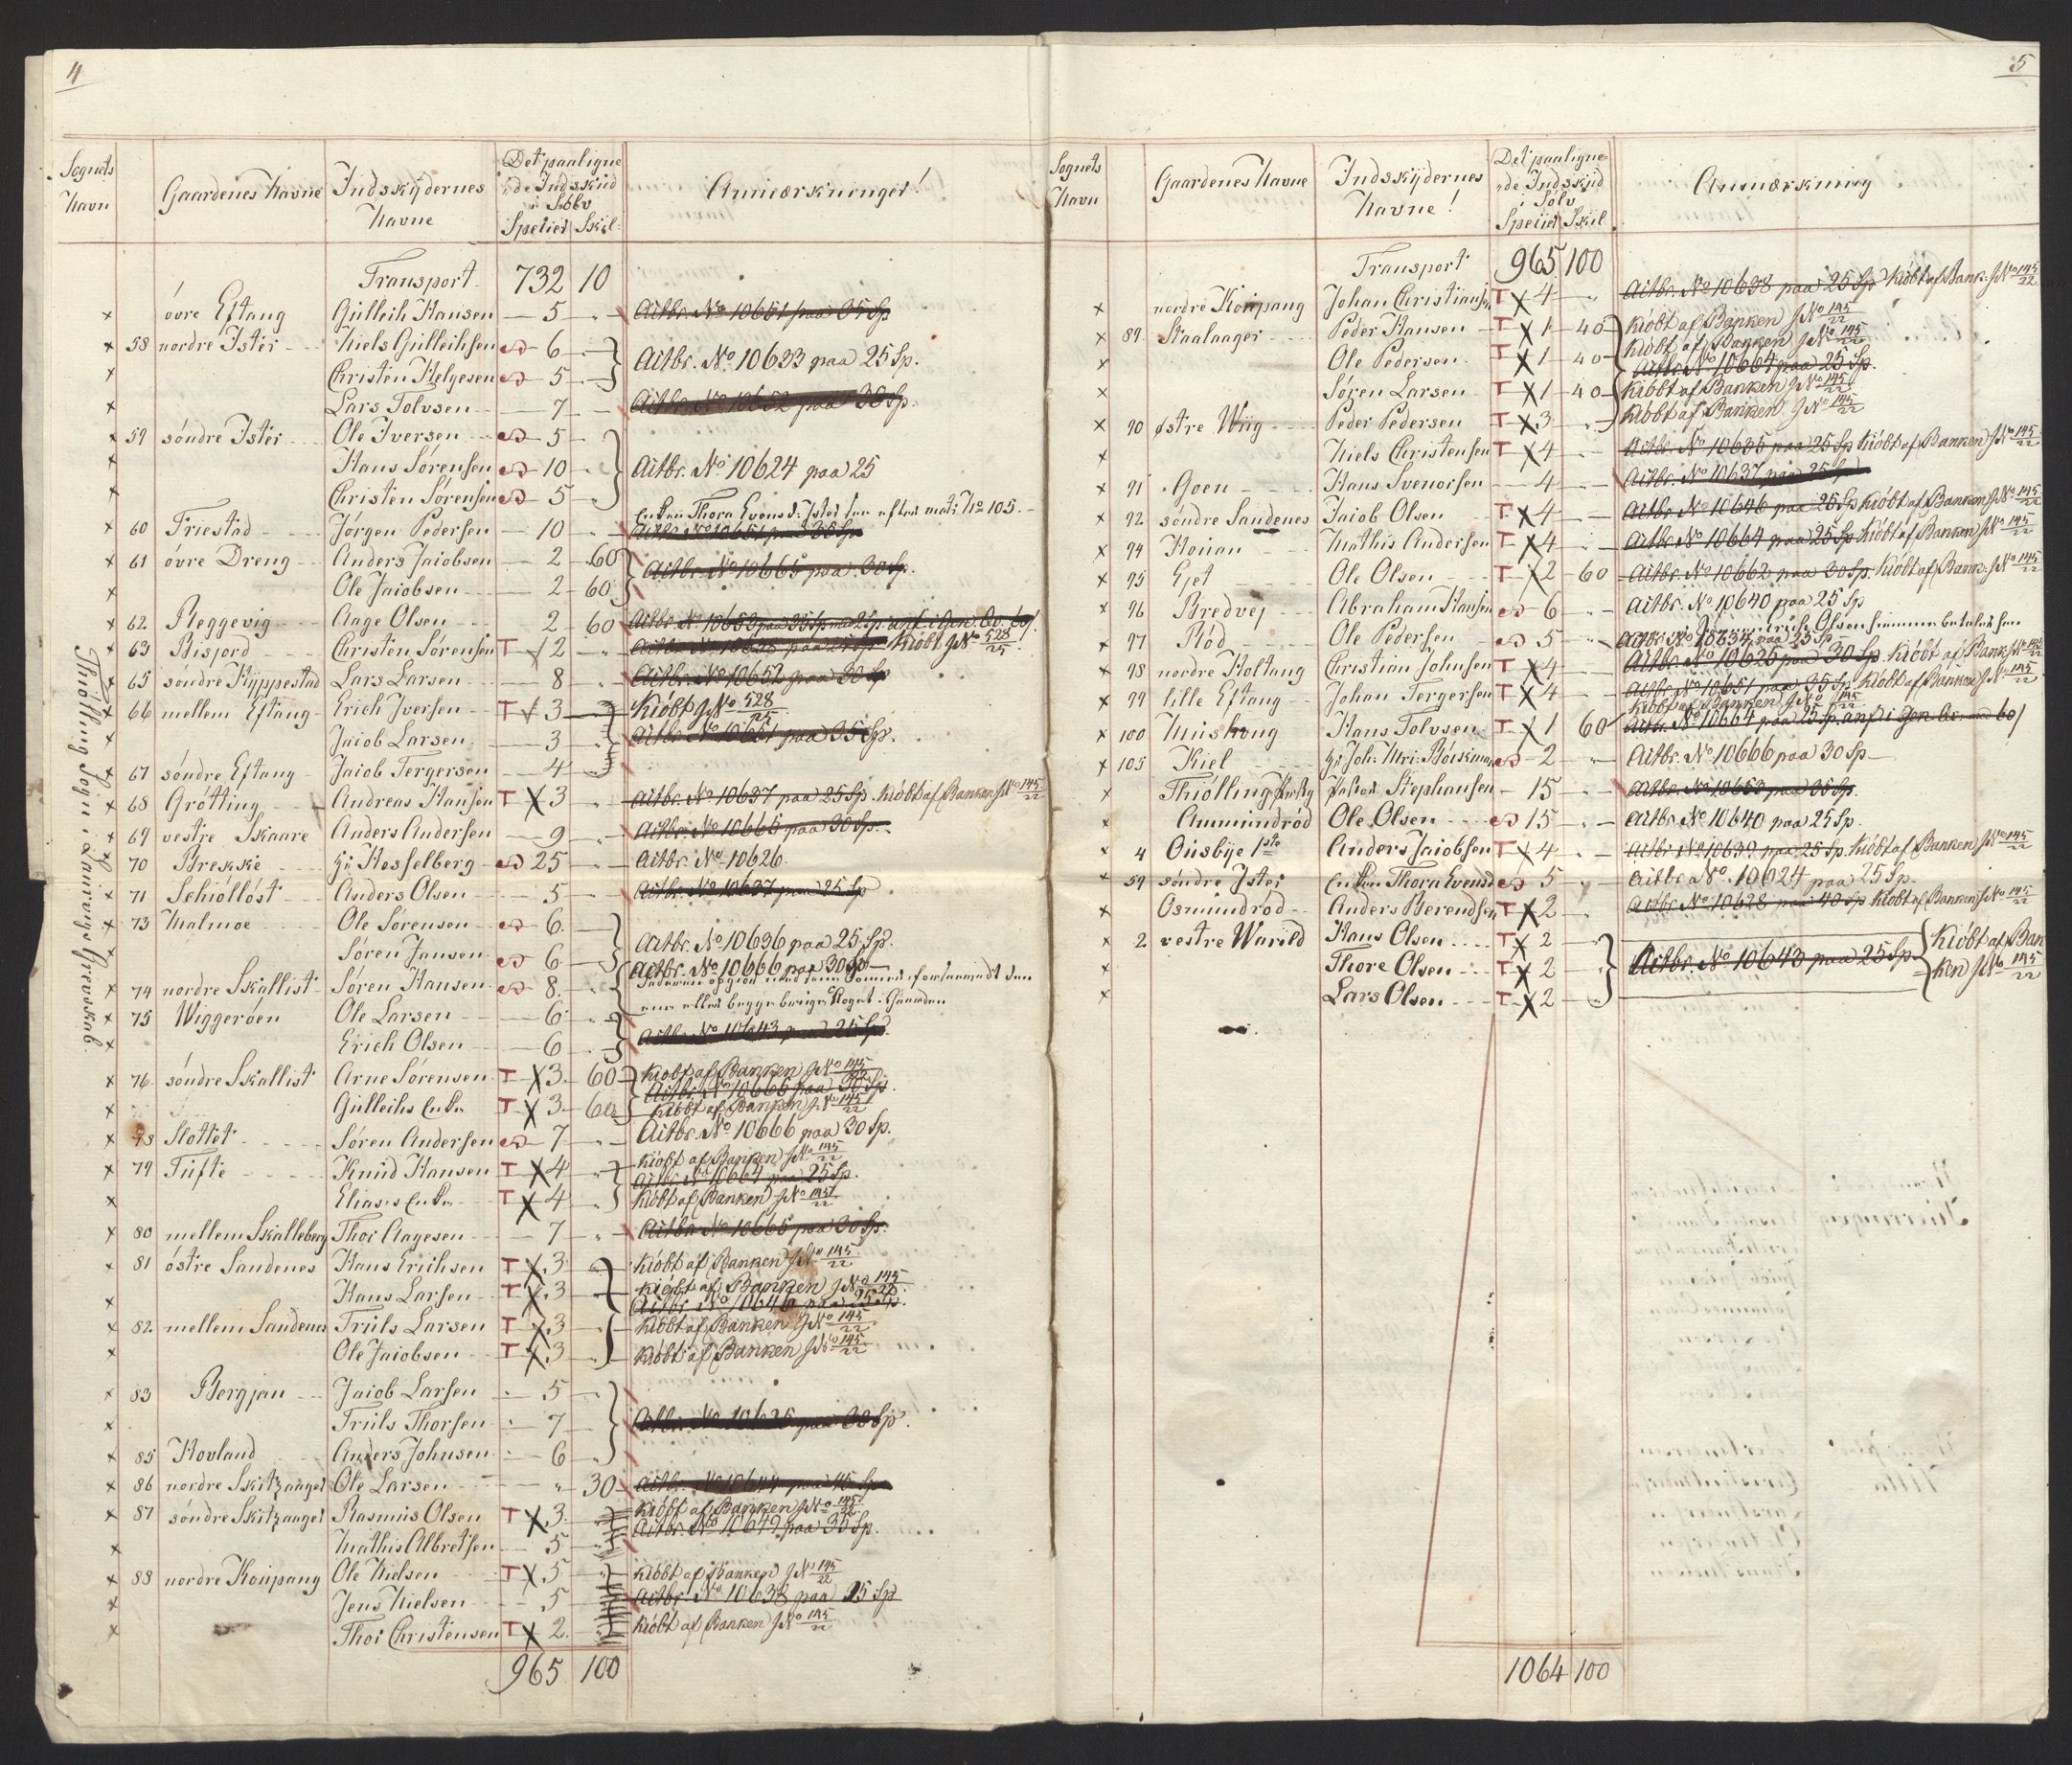 4
Sognets Navn
Gaardenes Navne
Indskydernes Navne
Det paaligne-
de Indskud
i Sölv
Specier Skil:
Anmærkninger!
Thiölling Sogn i Laurvigs Grevskab.
Transport 732 10
× øvre Eftang Gulleich Hansen 5 Actbr. No 10651 paa 35 Sp
× 58 nordre Ister Niels Gulleichsen 6
× Christen Helgesen 5 Actbr. No 10633 paa 25 Sp.
× Lars Tolvsen 7 Actbr. No 10652 paa 30 Sp.
× 59 söndre Ister Ole Iversen 5
× Hans Sørensen 10 Actbr. No 10624 paa 25
× Christen Sørensen 5
Enken Thora Evens d: Ister see efter matr: No 105.
× 60 Friestad Jørgen Pedersen 10 Actbr. No 10651 paa 35 Sp
× 61 øvre Dreng Anders Jacobsen 2 60
× Ole Jacobsen 2 60 Actbr. No 10665 paa 30 Sp.
× 62 Reggevig Aage Olsen 2 60 Actbr. No 10653 paa 35 Sp
× 63 Bisjord Christen Sørensen T 2 Kiöbt J No 528/25
× 65 söndre Kyppestad Lars Larsen 8 Actbr. No 10652 paa 30 Sp
× 66 mellem Eftang Erich Iversen T 3 Kiöbt J No 528/25
× Jacob Larsen 3 Actbr. No 10651 paa 35 Sp.
× 67 söndre Eftang Jacob Tergersen 4
× 68 Grötting Andreas Hansen T 3 Actbr. No 10637 paa 25 Sp. Kiöbt af Banken J No 145/22
× 69 vestre Skaare Anders Andersen 9 Actbr. No 10665 paa 30 Sp.
× 70 Brekske Hr: Hesselberg 25 Actbr. No 10626.
× 71 Schiöllöst Anders Olsen 5 Actbr. No 10637 paa 25 Sp
× 73 Malmoe Ole Sørensen 6
× Søren Jansen 6 Actbr. No 10636 paa 25 Sp.
× 74 nordre Skallist Søren Hansen 8 Actbr. No 10666 paa 30 Sp
× 75 Wiggeröen Ole Larsen 6
× Erich Olsen 6 Actbr. No 10643 paa 25 Sp.
× 76 söndre Skallist Arne Sørensen T 3 60 Kiöbt af Banken J No 145/22
Actbr. No 10666 paa 30 Sp.
× Gulleichs Enke T 3 60 Kiöbt af Banken J No 145/22
78 Slottet Søren Andersen 7 Actbr. No 10666 paa 30 Sp.
× 79 Tufte Knud Hansen T 4 Kiöbt af Banken J No 145/22
Actbr. No 10664 paa 25 Sp.
× Eliases Enke T 4 Kiöbt af Banken J No 145/22
× 80 mellem Skalleberg Thor Aagesen 7 Actbr. No 10665 paa 30 Sp.
× 81 östre Sandenes Hans Erichsen T 3 Kiöbt af Banken J No 145/22
× Hans Larsen T 3 Kiöbt af Banken J No 145/22
Actbr. No 10646 paa 25 Sp.
× 82 mellem Sandenes Truls Larsen T 3 Kiöbt af Banken J No 145/22
× Ole Jacobsen T 3 Kiöbt af Banken J No 145/22
× 83 Bergjan Jacob Larsen 5
× Truls Thorsen 7 Actbr. No 10625 paa 30 Sp.
× 85 Hovland Anders Johnsen 6
× 86 nordre Skitzanger Ole Larsen 30
× 87 söndre Skitzanger Rasmus Olsen T 3 Kiöbt af Banken J No 145/22
Actbr. No 10649 paa 35 Sp.
× Mathis Albretsen 5
× 88 nordre Koupang Ole Nielsen T 5 Kiöbt af Banken J No 145/22
× Jens Nielsen 5 Actbr. No 10638 paa 25 Sp
× Thor Christensen T 2 Kiöbt af Banken J No 145/22
965 100
5
Sognets Navn
Gaardenes Navne
Indskydernes Navne!
Det paaligne-
de Indskud
i Sölv
Specier Skil.
Anmærkning
Transport 965 100
× nordre Koupang Johan Christiansen T 4 Actbr. No 10638 paa 25 Sp Kiöbt af Bank: J No 145/22
× 89 Staalaager Peder Hansen T 1 40 Kiöbt af Banken J No 145/22
× Ole Pedersen T 1 40 Kiöbt af Banken J No 145/22
Actbr. No 10664 paa 25 Sp.
× Søren Larsen T 1 40 Kiöbt af Banken J No 145/22
× 90 østre Wiig Peder Pedersen T 3 Kiöbt af Banken J No 145/22
× Niels Christensen T 4 Actbr. No 10635 paa 25 Sp Kiöbt af Banken J No 145/22
× 91 Goen Hans Svenorsen 4 Actbr. No 10637 paa 25 Sp
× 92 söndre Sandenes Jacob Olsen T 4 Actbr. No 10646 paa 25 Sp Kiöbt af Banken J No 145/22
× 94 Houan Mathis Andersen T 4 Actbr. No 10664 paa 25 Sp Kiöbt af Banken J No 145/22
× 95 Ejet Ole Olsen T 2 60 Actbr. No 10662 paa 30 Sp. Kiöbt af Bank: J No 145/22
× 96 Bredvej Abraham Hansen 6 Actbr. No 10640 paa 25 Sp
× 97 Röd Ole Pedersen 5
× 98 nordre Holtang Christian Johnsen T 4 Actbr. No 10625 paa 30 Sp. Kiöbt af Bank J No 145/22
× 99 lille Eftang Johan Tergersen T 4 Actbr. No 10651 paa 35 Sp Kiöbt af Banken J No 145/22
Kiöbt af Banken J No 145/22
× 100 Huiskong Hans Tolvsen T 1 60 Actbr. No 10664 paa 25 Sp.
× 105 Kiel 2 Actbr. No 10666 paa 30 Sp
× Thiölling Pastor Stephansen 15 Actbr. No 10653 paa 35 Sp.
× Ammundröd Ole Olsen 15 Actbr. No 10640 paa 25 Sp.
× 4 Ousbye 1ste Anders Jacobsen T 4 Actbr. No 10639 paa 25 Sp. Kiöbt af Banken J No 145/22
× 59 söndre Ister Enken Thora Evensd 5 Actbr. No. 10624 paa 25 Sp
× Osmundröd Anders Berendsen T 2 Actbr. No 10628 paa 40 Sp Kiöbt af Banken J No 145/22
× 2 vestre Warild Hans Olsen T 2
× Thore Olsen T 2 Actbr. No 10643 paa 25 Sp Kiöbt af Ban-
ken J No 145/22
× Lars Olsen T 2
1064 100